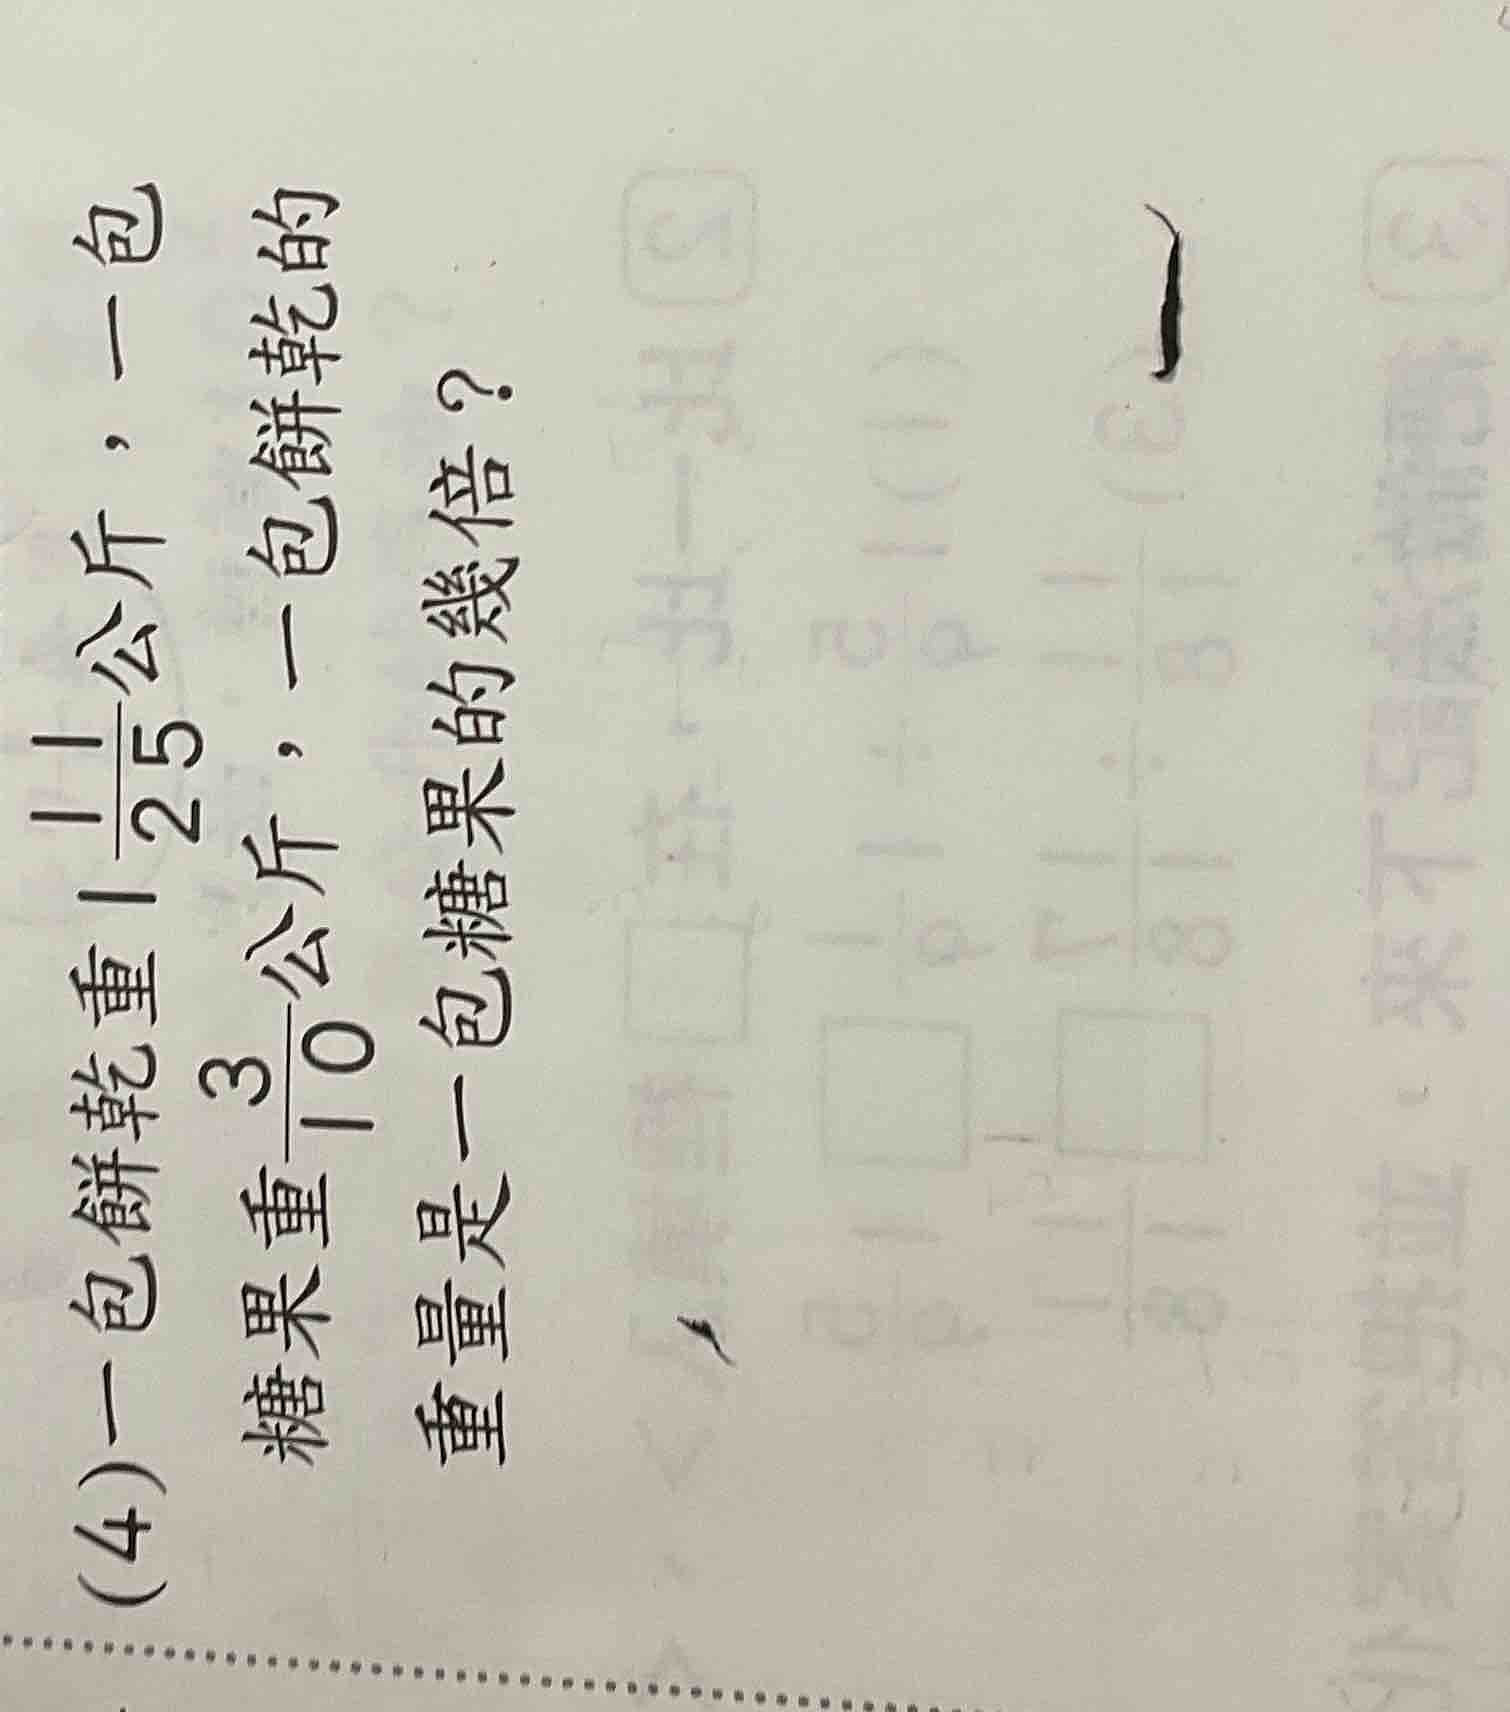 (4)一包餅乾重1 11/25公斤，一包
糖果重3/10公斤，一包餅乾的
重量是一包糖果的幾倍？